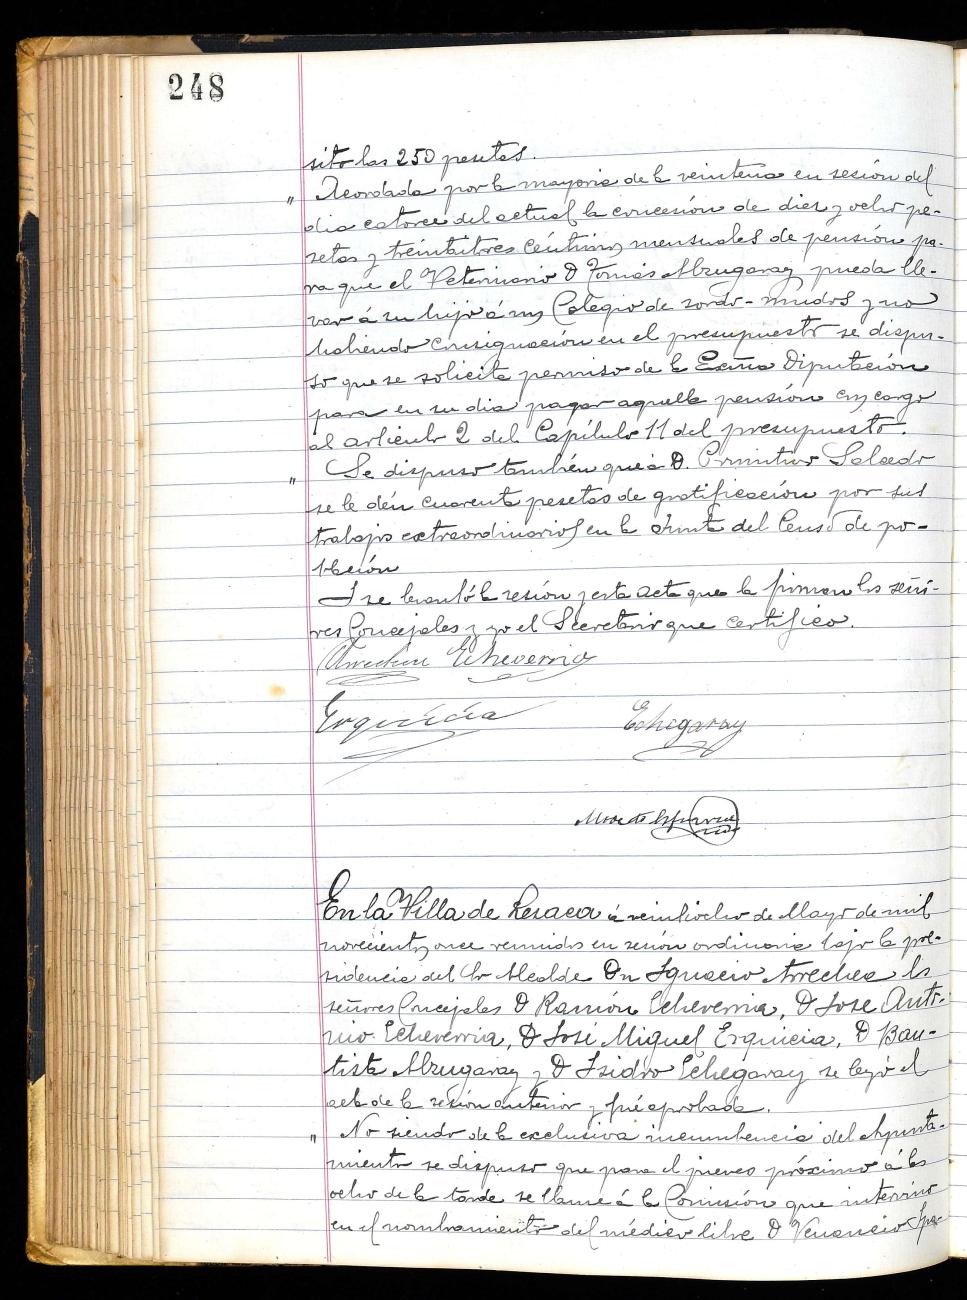 248
sito las 250 pesetas.
" Acordada por la mayoria de la veintena en sesión del
dia catorce del actual la concesión de diez y ocho pe-
setas y treintaitres céntimos mensuales de pensión pa-
ra que el Veterinario D Tomás Alzugaray pueda lle-
var á su hijo á un Colegio de sordo-mudos y no
habiendo consignación en el presupuesto se dispu-
so que se solicite permiso de la Exma Diputación
para en su dia pagar aquella pensión con cargo
al articulo 2 del Capítulo 11 del presupuesto.
" Se dispuso también que á D. Primitivo Salcedo
se le dén cuarenta pesetas de gratificación por sus
trabajos extraordinarios en la Junta del Censo de po-
blación
I se levantó la sesión y esta acta que la firman los seño-
res Concejales y yo el Secretario que certifico.
Arrechea Echeverria
Erquicia Echegaray
En la Villa de Lesaca á veintiocho de Mayo de mil
novecientos once reunidos en sesión ordinaria bajo la pre-
sidencia del Sr Alcalde Dn Ignacio Arrechea los
señores Concejales D Ramón Echeverria, D Jose Anto-
nio Echeverria, D José Miguel Erquicia, D Bau-
tista Alzugaray y D Isidro Echegaray se leyó el
acta de la sesión anterior y fué aprobada.
" No siendo de la exclusiva incumbencia del Ayunta-
miento se dispuso que para el jueves próximo á las
ocho de la tarde se llame á la Comisión que intervino
en el nombramiento del médico libre D Venancio